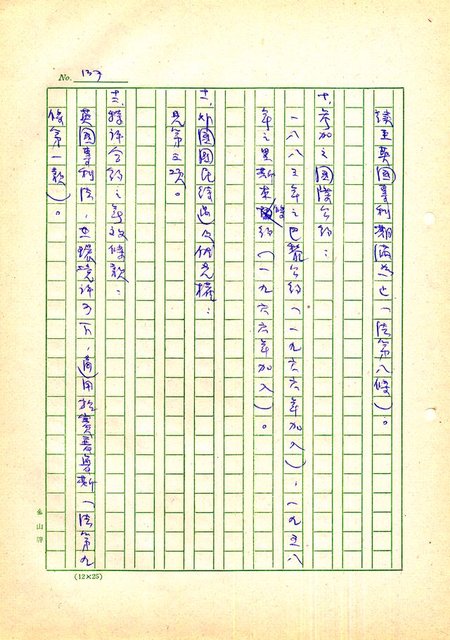 No. 137
續至英國專利期滿為止（法第八條）。
十、參加之國際公約：
一八八三年之巴黎公約（一九六六年加入），一九五八
年之里斯本條約（一九六六年加入）。
十一、外國國民待遇及優先權：
見第三項。
十二、特許合約之無效條款：
英國專利法，在環境許可下，適用於賽普魯斯（法第九
條第一款）。
(12×25)